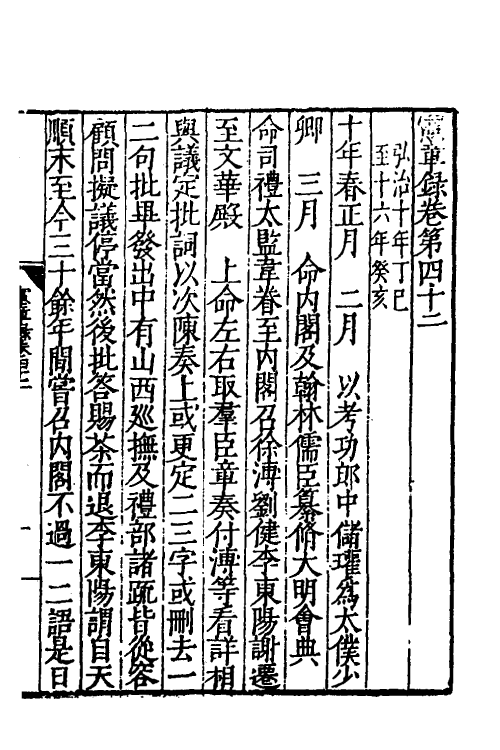 憲章錄卷第四十二
弘治十年丁巳
至十六年癸亥
十年春正月　二月　以考功郎中儲瓘為太僕少
卿　三月　命內閣及翰林儒臣纂脩大明會典
命司禮太監韋眷至內閣召徐溥劉健李東陽謝遷
至文華殿　上命左右取羣臣章奏付溥等看詳相
與議定批詞以次陳奏上或更定二三字或刪去一
二句批畢發出中有山西巡撫及禮部諸疏皆從容
顧問擬議停當然後批答賜茶而退李東陽謂自天
順末至今三十餘年間嘗召內閣不過一二語是日